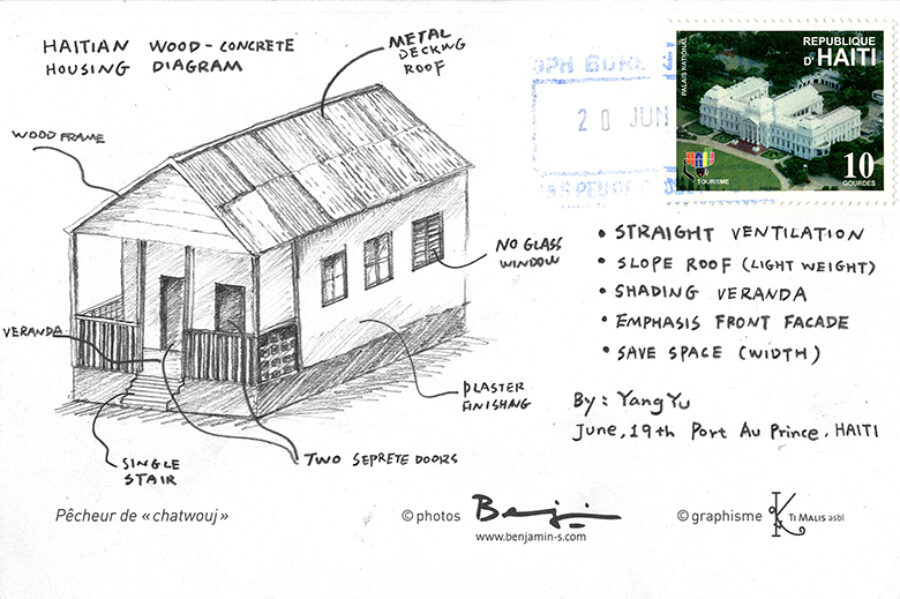 HAITIAN WOOD-CONCRETE
HOUSING DIAGRAM
METAL
DECKING
ROOF
WOOD FRAME
NO GLASS
WINDOW
VERANDA
PLASTER
FINISHING
SINGLE
STAIR
TWO SEPRETE DOORS
REPUBLIQUE
D'HAITI
PALAIS NATIONAL
TOURISME
10
GOURDES
20 JUN
• STRAIGHT VENTILATION
• SLOPE ROOF (LIGHT WEIGHT)
• SHADING VERANDA
• EMPHASIS FRONT FACADE
• SAVE SPACE (WIDTH)
By: YangYu
June, 19th Port Au Prince, HAITI
Pêcheur de « chatwouj »
© photos Benji
www.benjamin-s.com
© graphisme K TI MALIS asbl